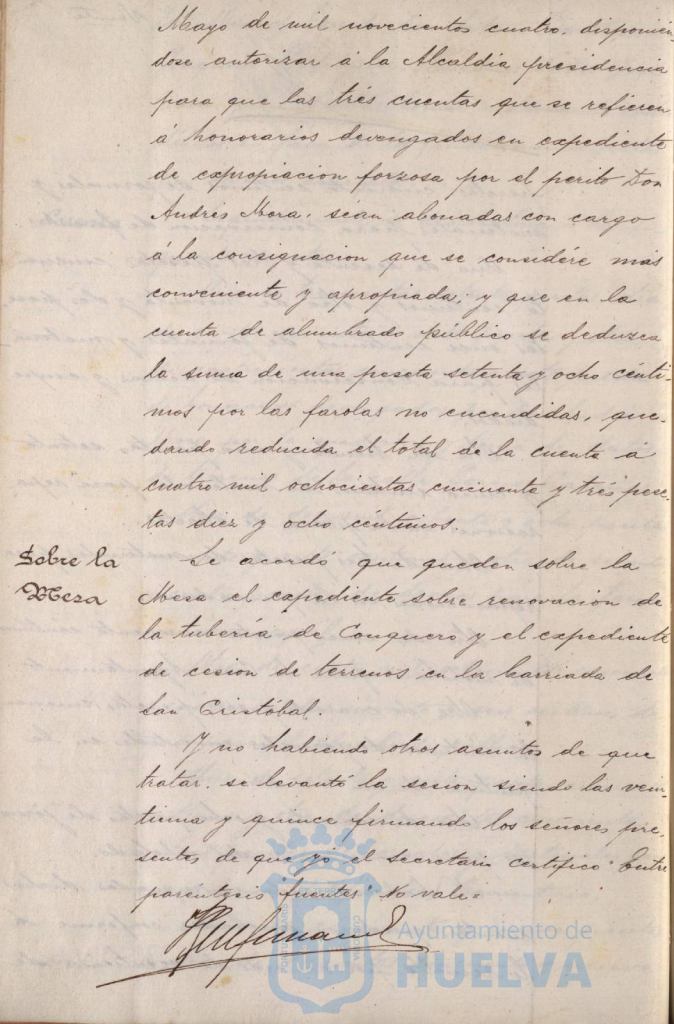 Mayo de mil novecientos cuatro, disponién-
dose autorizar á la Alcaldia presidencia
para que las trés cuentas que se refieren
á honorarios devengados en expediente
de expropiacion forzosa por el perito Don
Andrés Mora, séan abonadas con cargo
á la consignacion que se considére más
conveniente y apropiada; y que en la
cuenta de alumbrado público se deduzca
la suma de una peseta setenta y ocho cénti-
mos por las farolas no encendidas, que-
dando reducida el total de la cuenta á
cuatro mil ochocientas cincuenta y trés pese-
tas diez y ocho céntimos.
Sobre la
Mesa
Se acordó que queden sobre la
Mesa el expediente sobre renovacion de
la tubería de Conquero y el expediente
de cesion de terrenos en la barriada de
San Cristóbal.
Y no habiendo otros asuntos de que
tratar, se levantó la sesion siendo las vein-
tiuna y quince firmando los señores pre-
sentes de que yó el secretario certifico= Entre
paréntesis "fuentes" No vale=
Ayuntamiento de
HUELVA